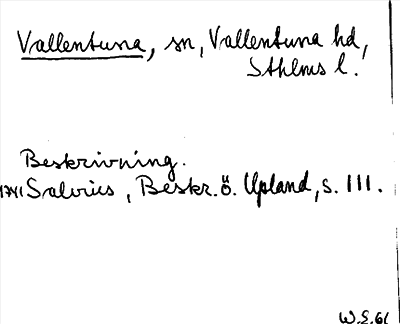 Vallentuna, sn, Vallentuna hd,
Sthlms l.
Beskrivning.
1741 Salvius, Beskr. ö. Upland, s. 111.
W.E.61